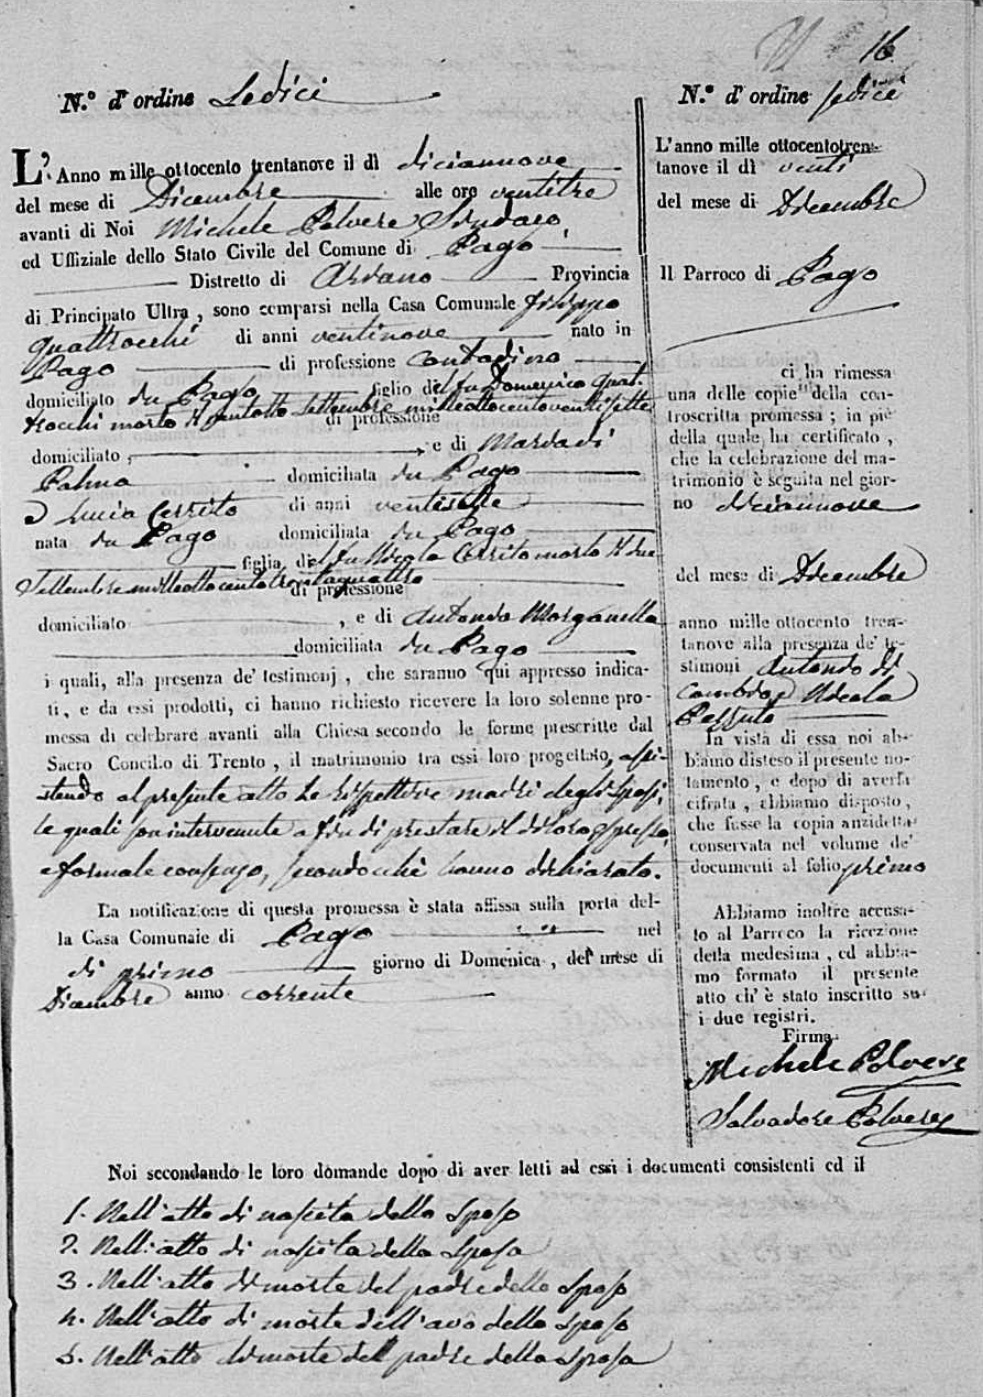 N.º d'ordine Sedici
L'Anno mille ottocento trentanove il dì diciannove
del mese di Dicembre alle ore ventitre
avanti di Noi Michele Polvere Sindaco,
ed Uffiziale dello Stato Civile del Comune di Pago
Distretto di Ariano Provincia
di Principato Ultra, sono comparsi nella Casa Comunale Filippo
Quattrocchi di anni ventinove nato in
Pago di professione contadino
domiciliato in Pago figlio del fu Domenico Quat-
trocchi morto il ventotto Settembre milleottocentoventisette
di professione
domiciliato, e di Maria di
Palma domiciliata in Pago
e Lucia Cerrito di anni ventisette
nata in Pago domiciliata in Pago
figlia del fu Nicola Cerrito morto il due
Settembre milleottocentotrentaquattro
di professione
domiciliato, e di Antonia Morganella
domiciliata in Pago
i quali, alla presenza de' testimonj, che saranno qui appresso indica-
ti, e da essi prodotti, ci hanno richiesto ricevere la loro solenne pro-
messa di celebrare avanti alla Chiesa secondo le forme prescritte dal
Sacro Concilio di Trento, il matrimonio tra essi loro progettato, assi-
stendo al presente atto le rispettive madri degli sposi,
le quali son intervenute a fin di prestare il di loro espresso,
e formale consenso, secondocchè hanno dichiarato.
La notificazione di questa promessa è stata affissa sulla porta del-
la Casa Comunale di Pago nel
dì primo giorno di Domenica, del mese di
Dicembre anno corrente
16
N.º d'ordine sedici
L'anno mille ottocentotren-
tanove il dì venti
del mese di Dicembre
Il Parroco di Pago
ci ha rimessa
una delle copie della con-
troscritta promessa; in piè
della quale ha certificato,
che la celebrazione del ma-
trimonio è seguita nel gior-
no diciannove
del mese di Dicembre
anno mille ottocento tren-
tanove alla presenza de' te-
stimoni Antonio di
e Nicola
In vista di essa noi ab-
biamo disteso il presente no-
tamento, e dopo di averla
cifrata, abbiamo disposto,
che fusse la copia anzidetta
conservata nel volume de'
documenti al folio primo
Abbiamo inoltre accusa-
to al Parroco la ricezione
della medesima, ed abbia-
mo formato il presente
atto ch' è stato inscritto su
i due registri.
Firma
Michele Polvere
Salvadore Polvere
Noi secondando le loro domande dopo di aver letti ad essi i documenti consistenti ed il
1. Nell'atto di nascita dello Sposo
2. Nell'atto di nascita della Sposa
3. Nell'atto di morte del padre dello Sposo
4. Nell'atto di morte dell'avo dello Sposo
5. Nell'atto di morte del padre della sposa